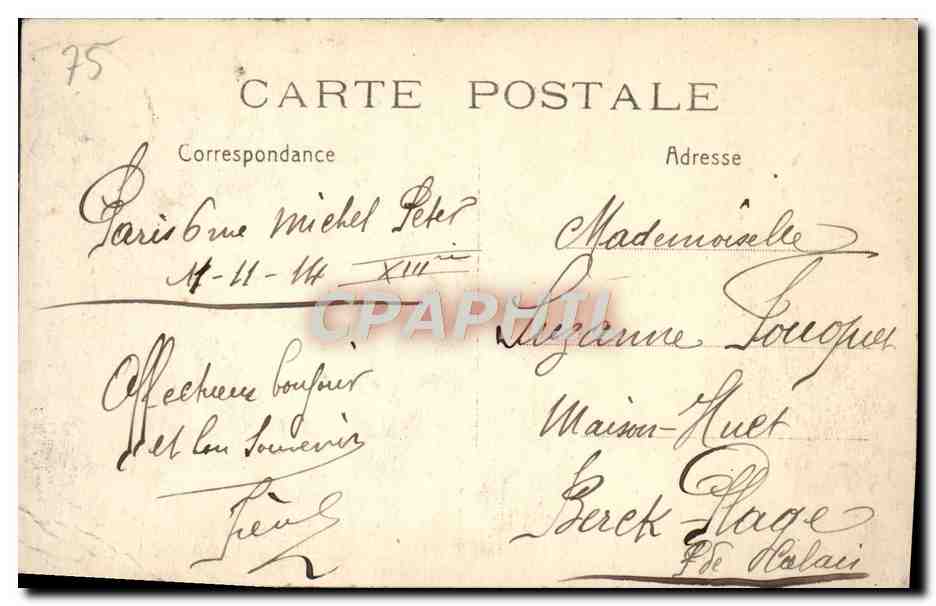 75
CARTE POSTALE
Correspondance
Adresse
Paris 6 rue Michel Peter
11-11-14 XIIIe
Affectueux bonjour
et bon souvenir
Mademoiselle
Suzanne Fouquet
Maison-Huet
Berck-Plage
P. de Calais
CPAPHIL